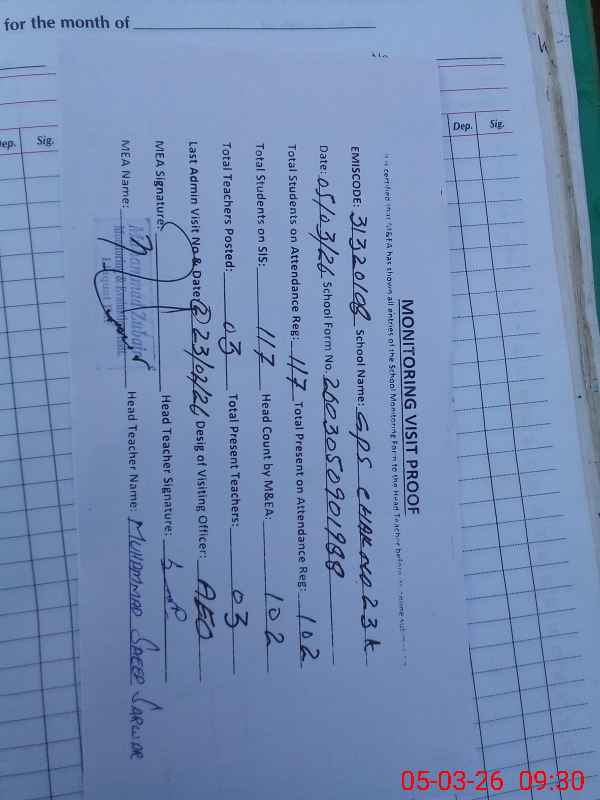 for the month of
Dep. Sig.
ep. Sig.
MONITORING VISIT PROOF
It is certified that M&EA has shown all entries of the School Monitoring Form to the Head Teacher before
EMISCODE: 31320108 School Name: GPS CHAK NO 23K
Date: 05/03/26 School Form No. 2603050901988
Total Students on Attendance Reg: 117 Total Present on Attendance Reg: 102
Total Students on SIS: 117 Head Count by M&EA: 102
Total Teachers Posted: 03 Total Present Teachers: 03
Last Admin Visit No & Date 2 23/02/26 Desig of Visiting Officer: AEO
MEA Signature: Head Teacher Signature:
MEA Name: Muhammad Zubair Head Teacher Name: MUHAMMAD SAEED SARWAR
05-03-26 09:30